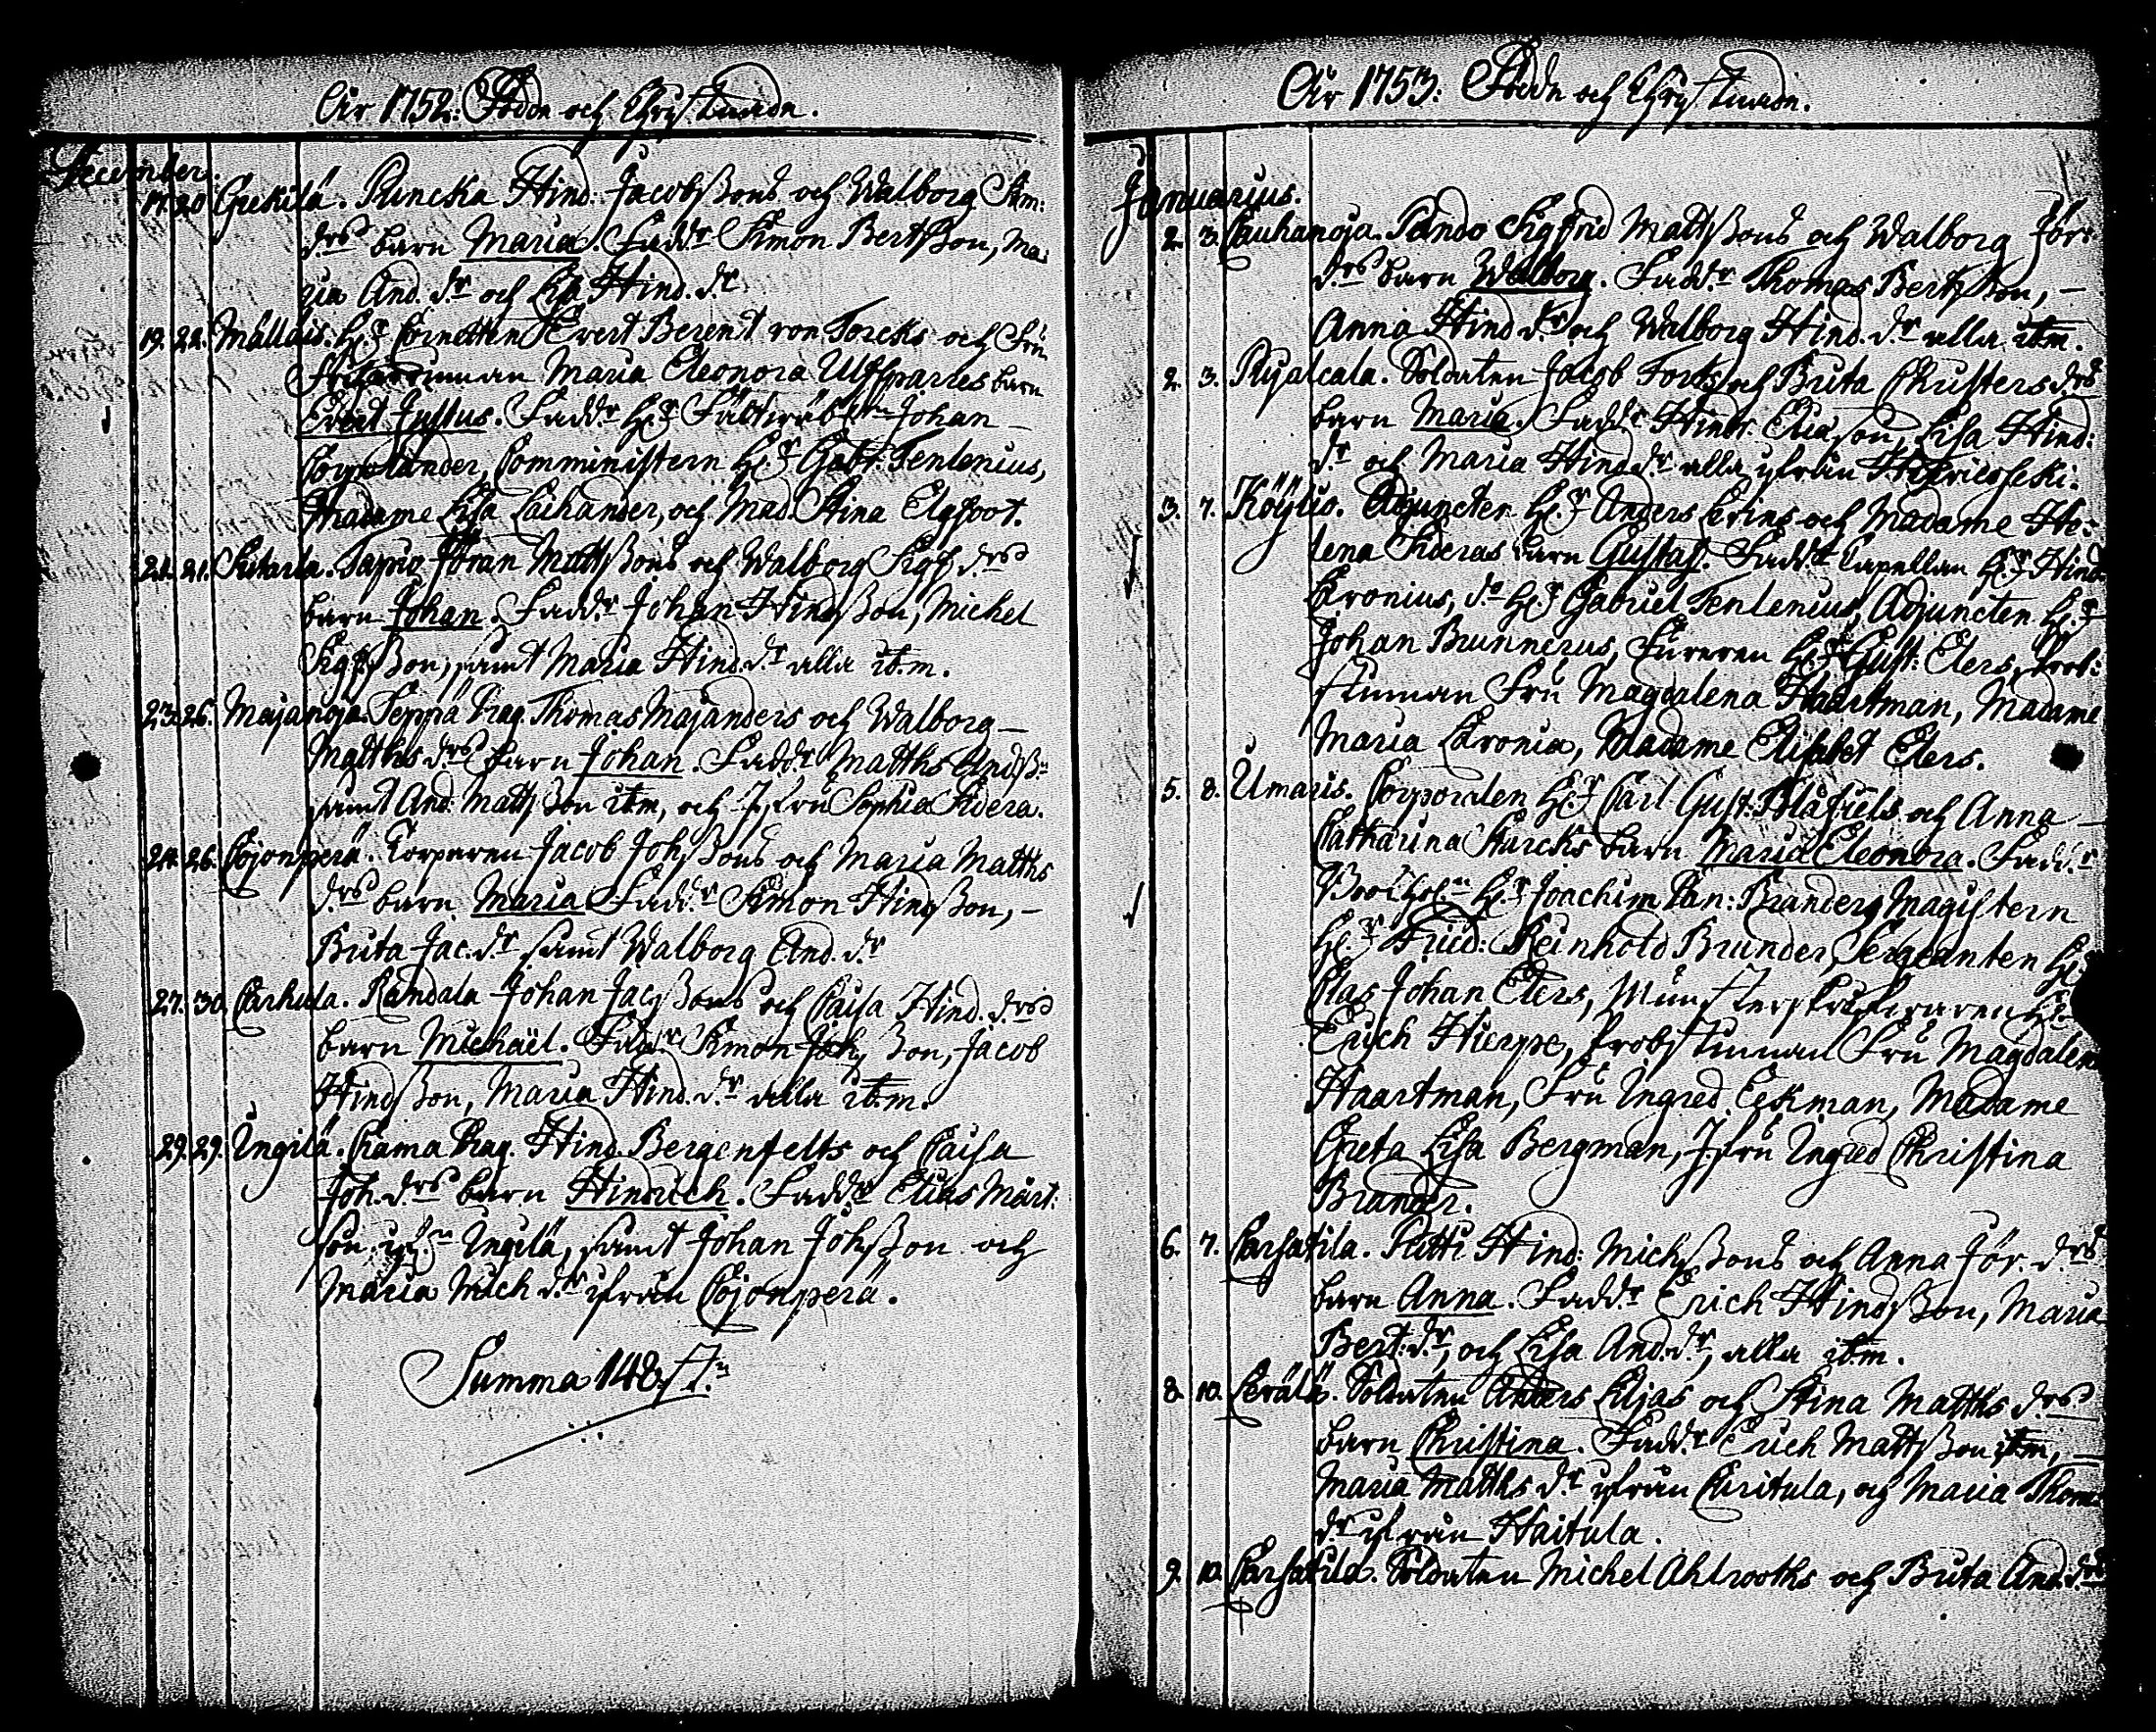 Åhr 1752. Födde och Christnade.
December.
17. 20. Gunnila. Runcka Hind: Jacobssons och Walborg Sim:
drs barn Maria. Faddr Simon Bertsson, Ma-
ria And. dr och Lisa Hind. dr
19. 22. Mällais. Hr Cornetten Evert Berent von Torcks och Fru
Maria Eleonora Ulfsparres barn
Evert Justus. Faddr Hr Johan
Comministern Hr Gabr. Tenlenius,
Madame Lisa Laihander, och Mad. Stina Elgfoot.
21. 21. Tapio Göran Mattssons och Walborg Sigf. drs
barn Johan. Faddr Johan Hindsson, Michel
Sigfsson, samt Maria Hind. dr alla ibm.
23. 26. Majanoja. Seppä Drag. Thomas Majanders och Walborg
Matths drs barn Johan. Faddr Matths Andss:n
samt And: Mattsson ibm, och Jfru Sophia Sidera.
24. 26. Pojonperä. Torparen Jacob Johssons och Maria Matths
drs barn Maria Faddr Simon Hindsson, –
Brita Jac. dr samt Walborg And. dr
27. 30. Karhula. Randala Johan Jacssons och Caisa Hind. drs
barn Michäel. Faddr Simon Johsson, Jacob
Hindsson, Maria Hind. dr alla ibm.
29. 29. Ungilä. Krama Drag. Hind. Bergenfelts och Caisa
Joh. drs barn Hindrich. Faddr Elias Märt:
son ifrn Ungilä, samt Johan Johsson och
Maria Mich dr ifrån Pojonperä.
Summa 148 st:n
Åhr 1753. Födde och Christnade.
Januarius.
2. 3. Cauhanoja. Pando Sigfrid Mattssons och Walborg Jör:
drs barn Walborg. Faddr Thomas Bertsson, –
Anna Hind dr och Walborg Hind. dr alla ibm.
2. 3. Ryalcala. Soldaten Jacob Forts och Brita Christers drs
barn Maria. Faddr Hindr. Ericsson, Lisa Hind:
dr och Maria Hind dr alla ifrån
3. 7. Köyliö. Adjuncten Hr Anders Lerins och Madame He-
lena Sideras barn Gustaf. Faddr Capellan Hr Hind.
Levonius, do Hr Gabriel Tenlenius, Adjuncten Hr
Johan Brunnerus, Fureren Hr Gust: Elers, Prob:
stinnan Fru Magdalena Haartman, Madame
Maria Levonia, Madame Elisabet Elers.
5. 8. Umaris. Corporalen Hr Carl Gust: Blåfiels och Anna –
Catharina Starcks barn Maria Eleonora. Faddr
Hr Joachim Brander, Magistern
Hr Fried: Reinhold Brander, Sergeanten Hr
Clas Johan Elers, Munsterskrifvaren Hr
Erich Hierpe, Probstinnan Fru Magdalena
Haartman, Fru Ingred Eckman, Madame
Greta Lisa Bergman, Jfru Ingred Christina
Brander.
6. 7. Karhatila. Putti Hind: Michssons och Anna Jör. drs
barn Anna. Faddr Erich Hindsson, Maria
Bert: dr, och Lisa And. dr, alla ibm.
8. 10. Perälä. Soldaten Anders Lejas och Stina Matths drs
barn Christina. Faddr Erich Mattsson ibm, –
Maria Matths dr ifrån Curitula, och Maria Thom.
dr ifrån Haitula.
9. 10. Karhatila. Soldaten Michel Ahlrooths och Brita And. drs